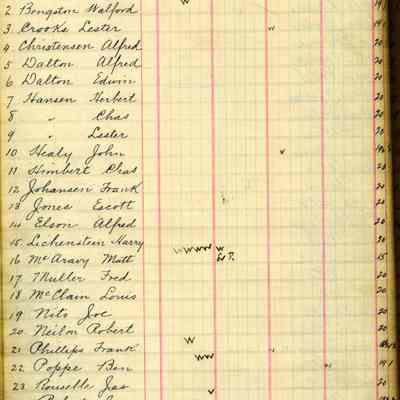 2 Bengston Walford w 19
3 Crooks Lester w
4 Christensen Alfred 20
5 Dalton Alfred 20
6 Dalton Edwin 20
7 Hansen Herbert 20
8 " Chas 20
9 " Lester 20
10 Healy John v
11 Himbert Chas 20
12 Johansen Frank 20
13 Jones Escott 20
14 Elson Alfred 20
15 Lichenstein Harry 20
16 McAravy Matt wwww w 15
17 Müller Fred 20
18 McClain Louis 20
19 Nito Joe 20
20 Neilon Robert w 20
21 Phillips Frank ww
22 Poppe Ben 19
23 Rouselle Jas v 20